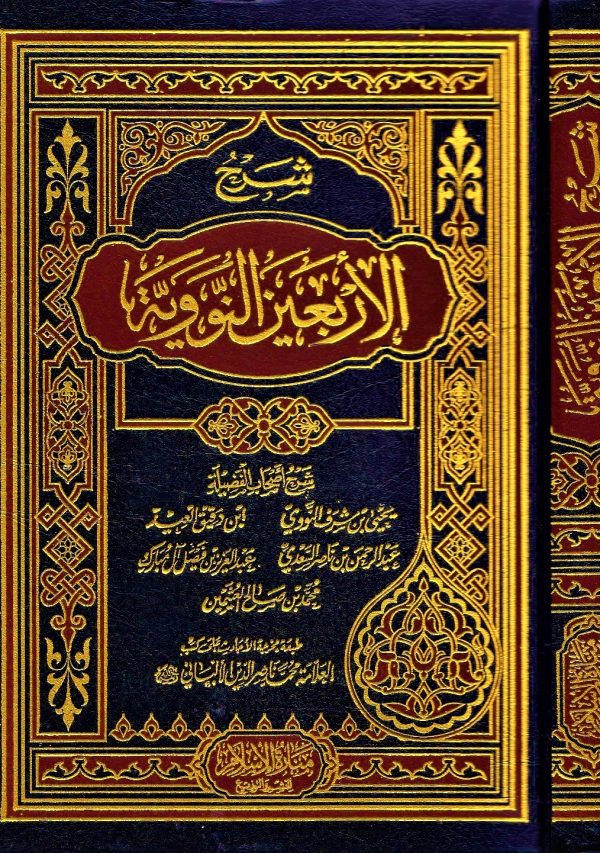 شرح
الأربعين النووية
شرح أصحاب الفضيلة
يحيى بن شرف النووي ابن دقيق العيد
عبد الرحمن بن ناصر السعدي عبد العزيز بن فيصل آل مبارك
محمد بن صالح العثيمين
طبعة مخرجة الأحاديث على كتب
العلامة محمد ناصر الدين الألباني
منارة الإسلام
للنشر والتوزيع
شرح الأربعين النووية
منارة الإسلام